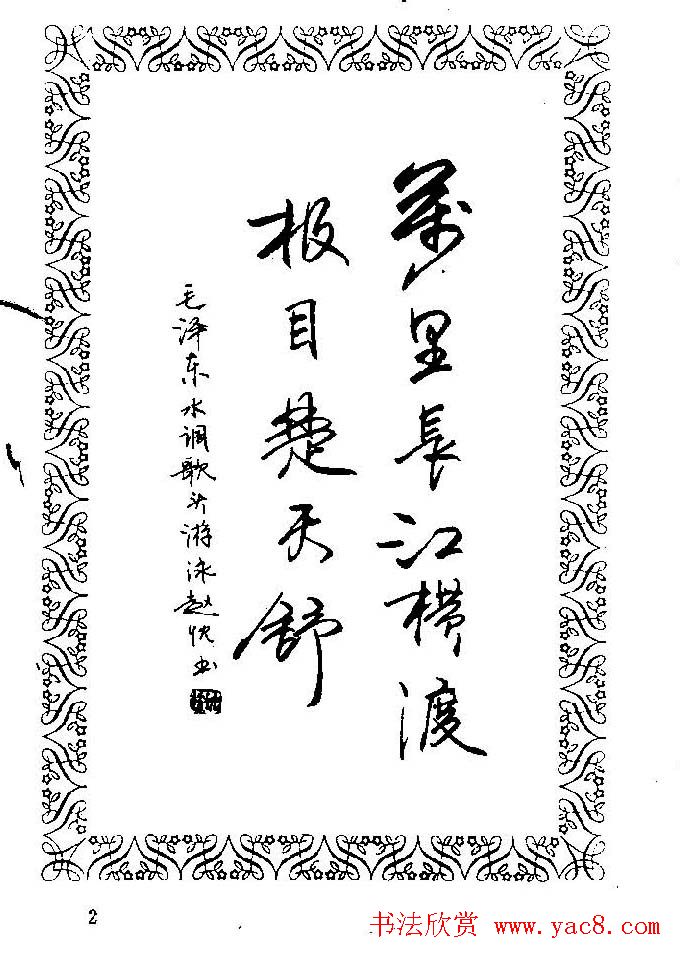 萬里長江横渡
极目楚天舒
毛泽东水调歌头游泳赵书
2
书法欣赏 www.yac8.com